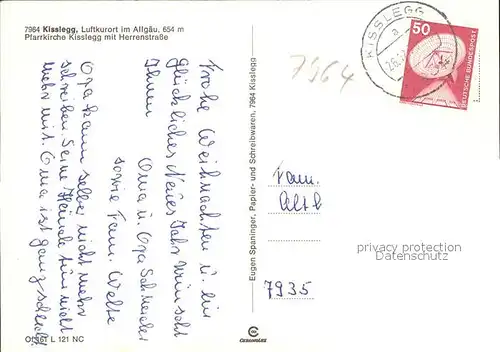 7964 Kisslegg, Luftkurort im Allgäu, 654 m
Pfarrkirche Kisslegg mit Herrenstraße
Frohe Weihnachten u. ein
Glückliches Neues Jahr wünscht
Ihnen
Oma u. Opa Schneider
sowie Fam. Welte
Opa kann selber nicht mehr
schreiben. Seine Hände tun nicht
mehr mit. Oma ist ganz schlecht
Ot 161 L 121 NC
Eugen Spaninger, Papier- und Schreibwaren, 7964 Kisslegg
CEKADE
7964
KISSLEGG
a
50
DEUTSCHE BUNDESPOST
Fam.
7935
privacy protection
AnsichtskartenNr.